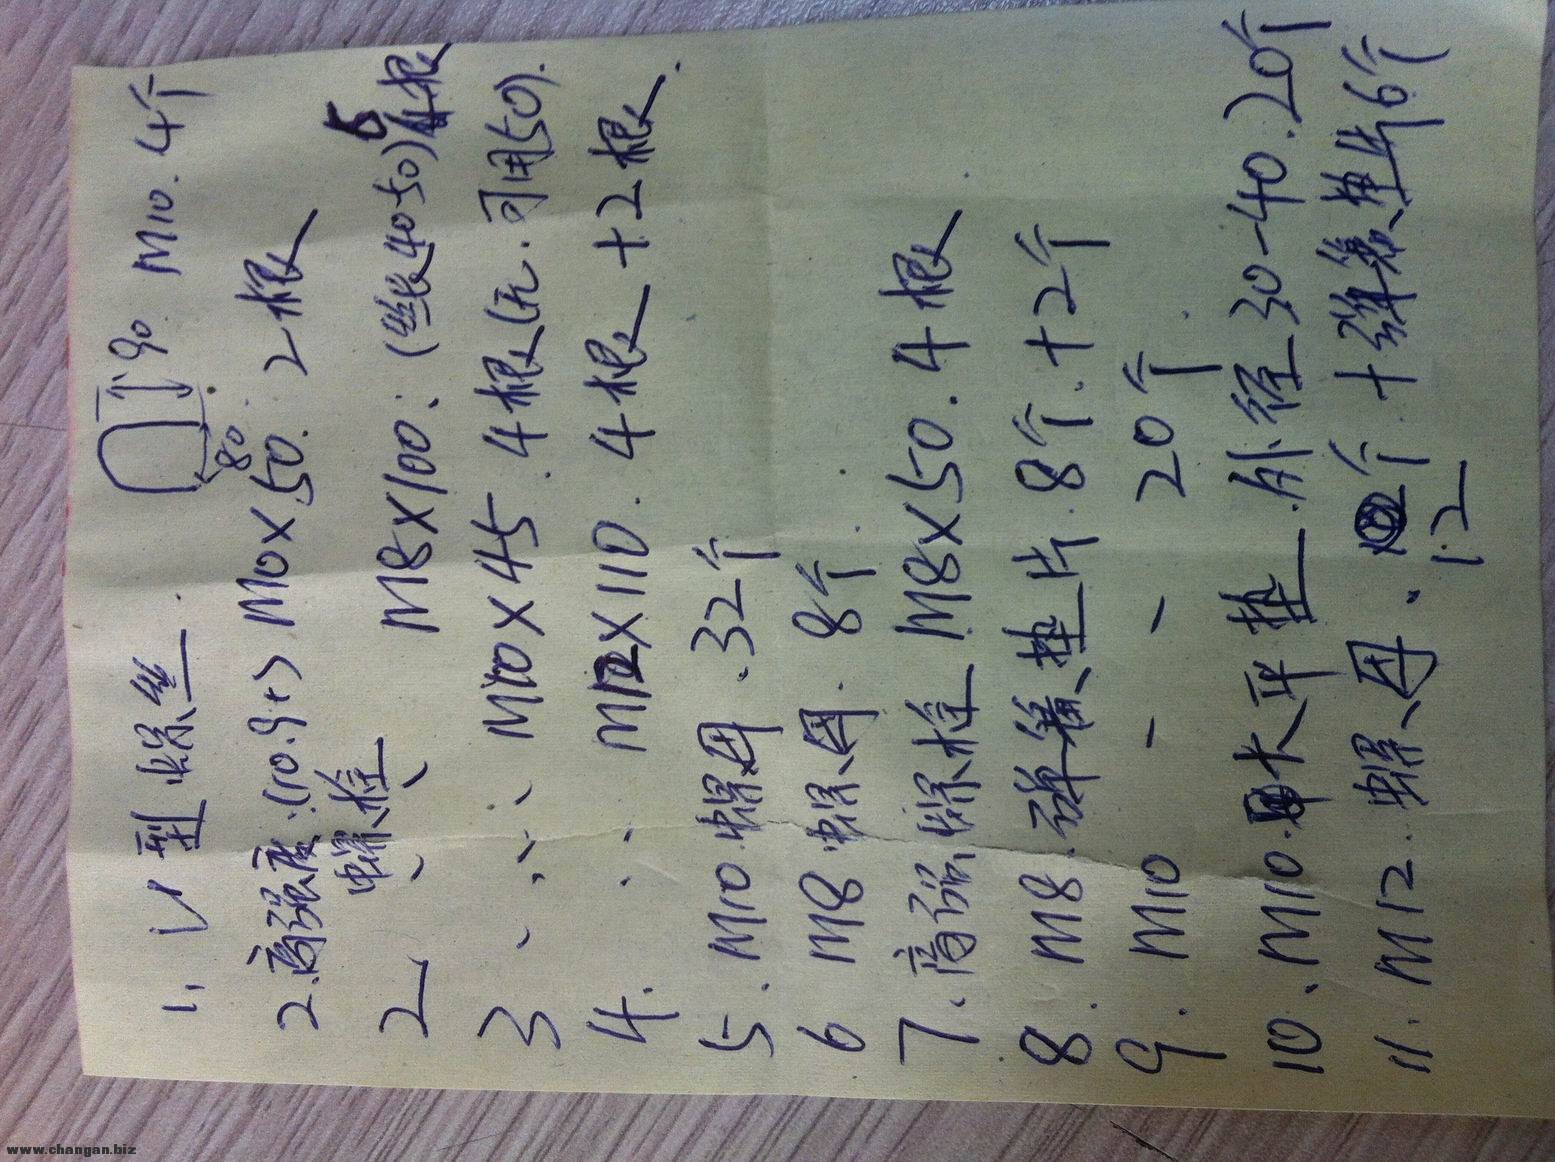 1. U型螺丝. 80 90 M10. 4个
2. 高强度.(10.9+) M10×50. 2根
螺栓
2 、 、 M8×100. (丝长40-50) 5根
3 、 、 、 M10×45. 4根(无.可用50).
4. . 、 M12×110. 4根+2根.
5. M10.螺母.32个
6 M8.螺母. 8个.
7.高强.螺栓 M8×50.4根
8. M8.弹簧、垫片.8个.+2个
9. M10 - - 20个.
10.M10.大平垫.外径30-40.20个
11. M12. 螺母. 个.+弹簧、垫片6个
12
www.changan.biz